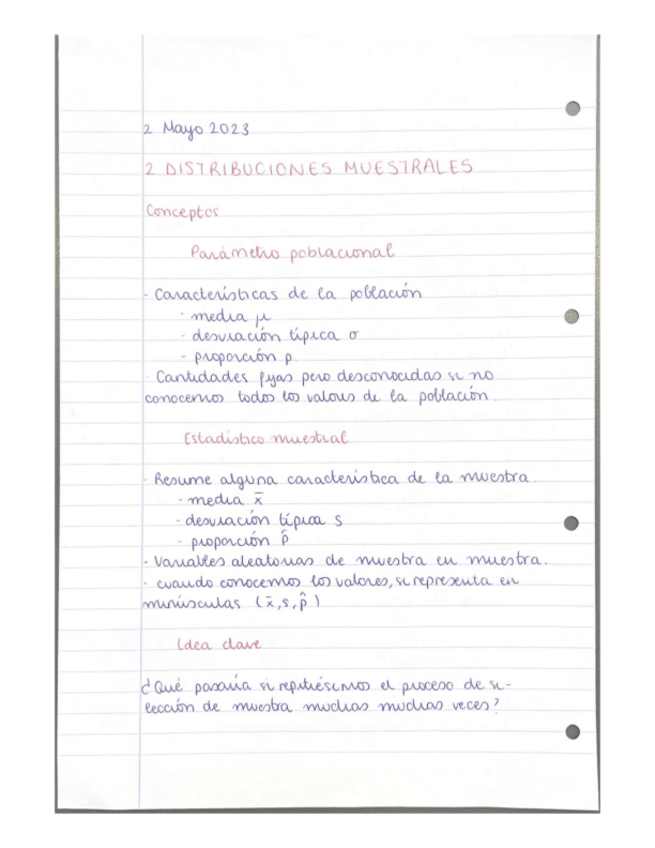 2 Mayo 2023
2 DISTRIBUCIONES MUESTRALES
Conceptos
Parámetro poblacional
- Características de la población
- media μ
- desviación típica σ
- proporción p
- Cantidades fijas pero desconocidas si no
conocemos todos los valores de la población.
Estadístico muestral
- Resume alguna característica de la muestra.
- media x̄
- desviación típica s
- proporción p̂
- Variables aleatorias de muestra en muestra.
- cuando conocemos los valores, se representa en
minúsculas (x̄, s, p̂)
Idea clave
¿Qué pasaría si repitiésemos el proceso de se-
lección de muestra muchas muchas veces?